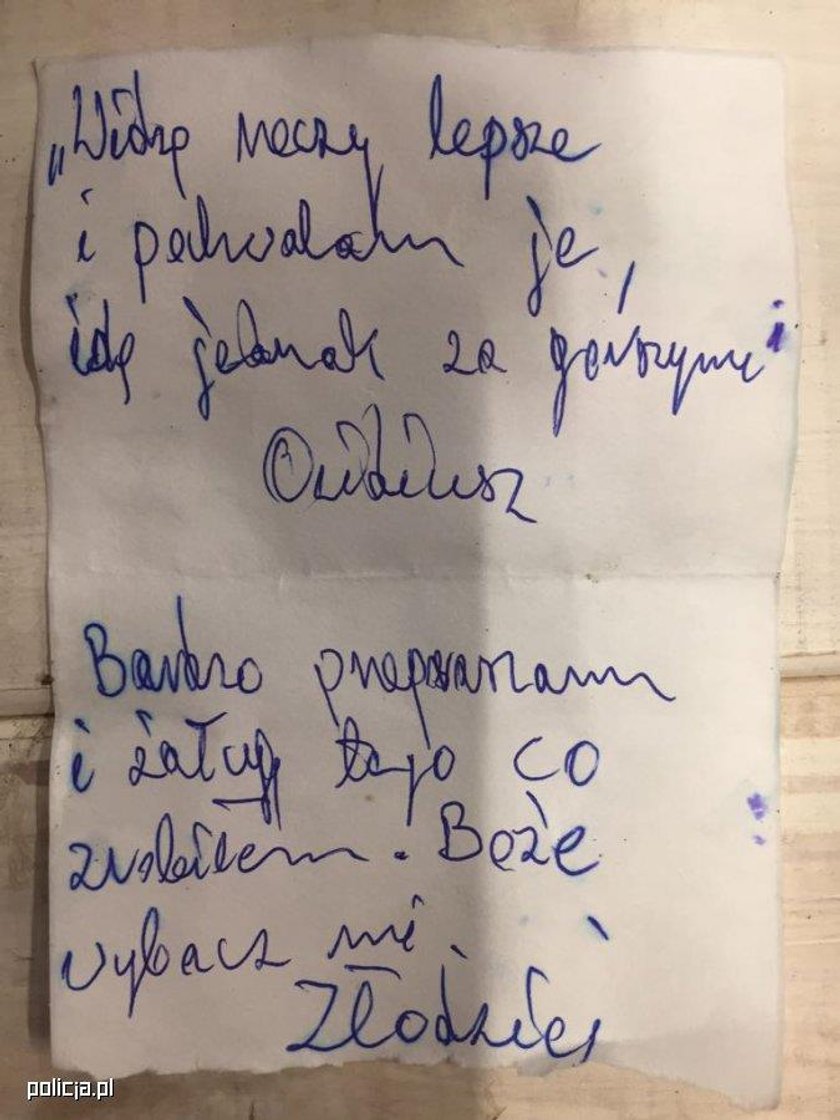 „Widzę rzeczy lepsze
i pochwalam je,
idę jednak za gorszymi
Owidiusz
Bardzo przepraszam
i żałuję tego co
zrobiłem. Boże
wybacz mi.
Złodziej
policja.pl